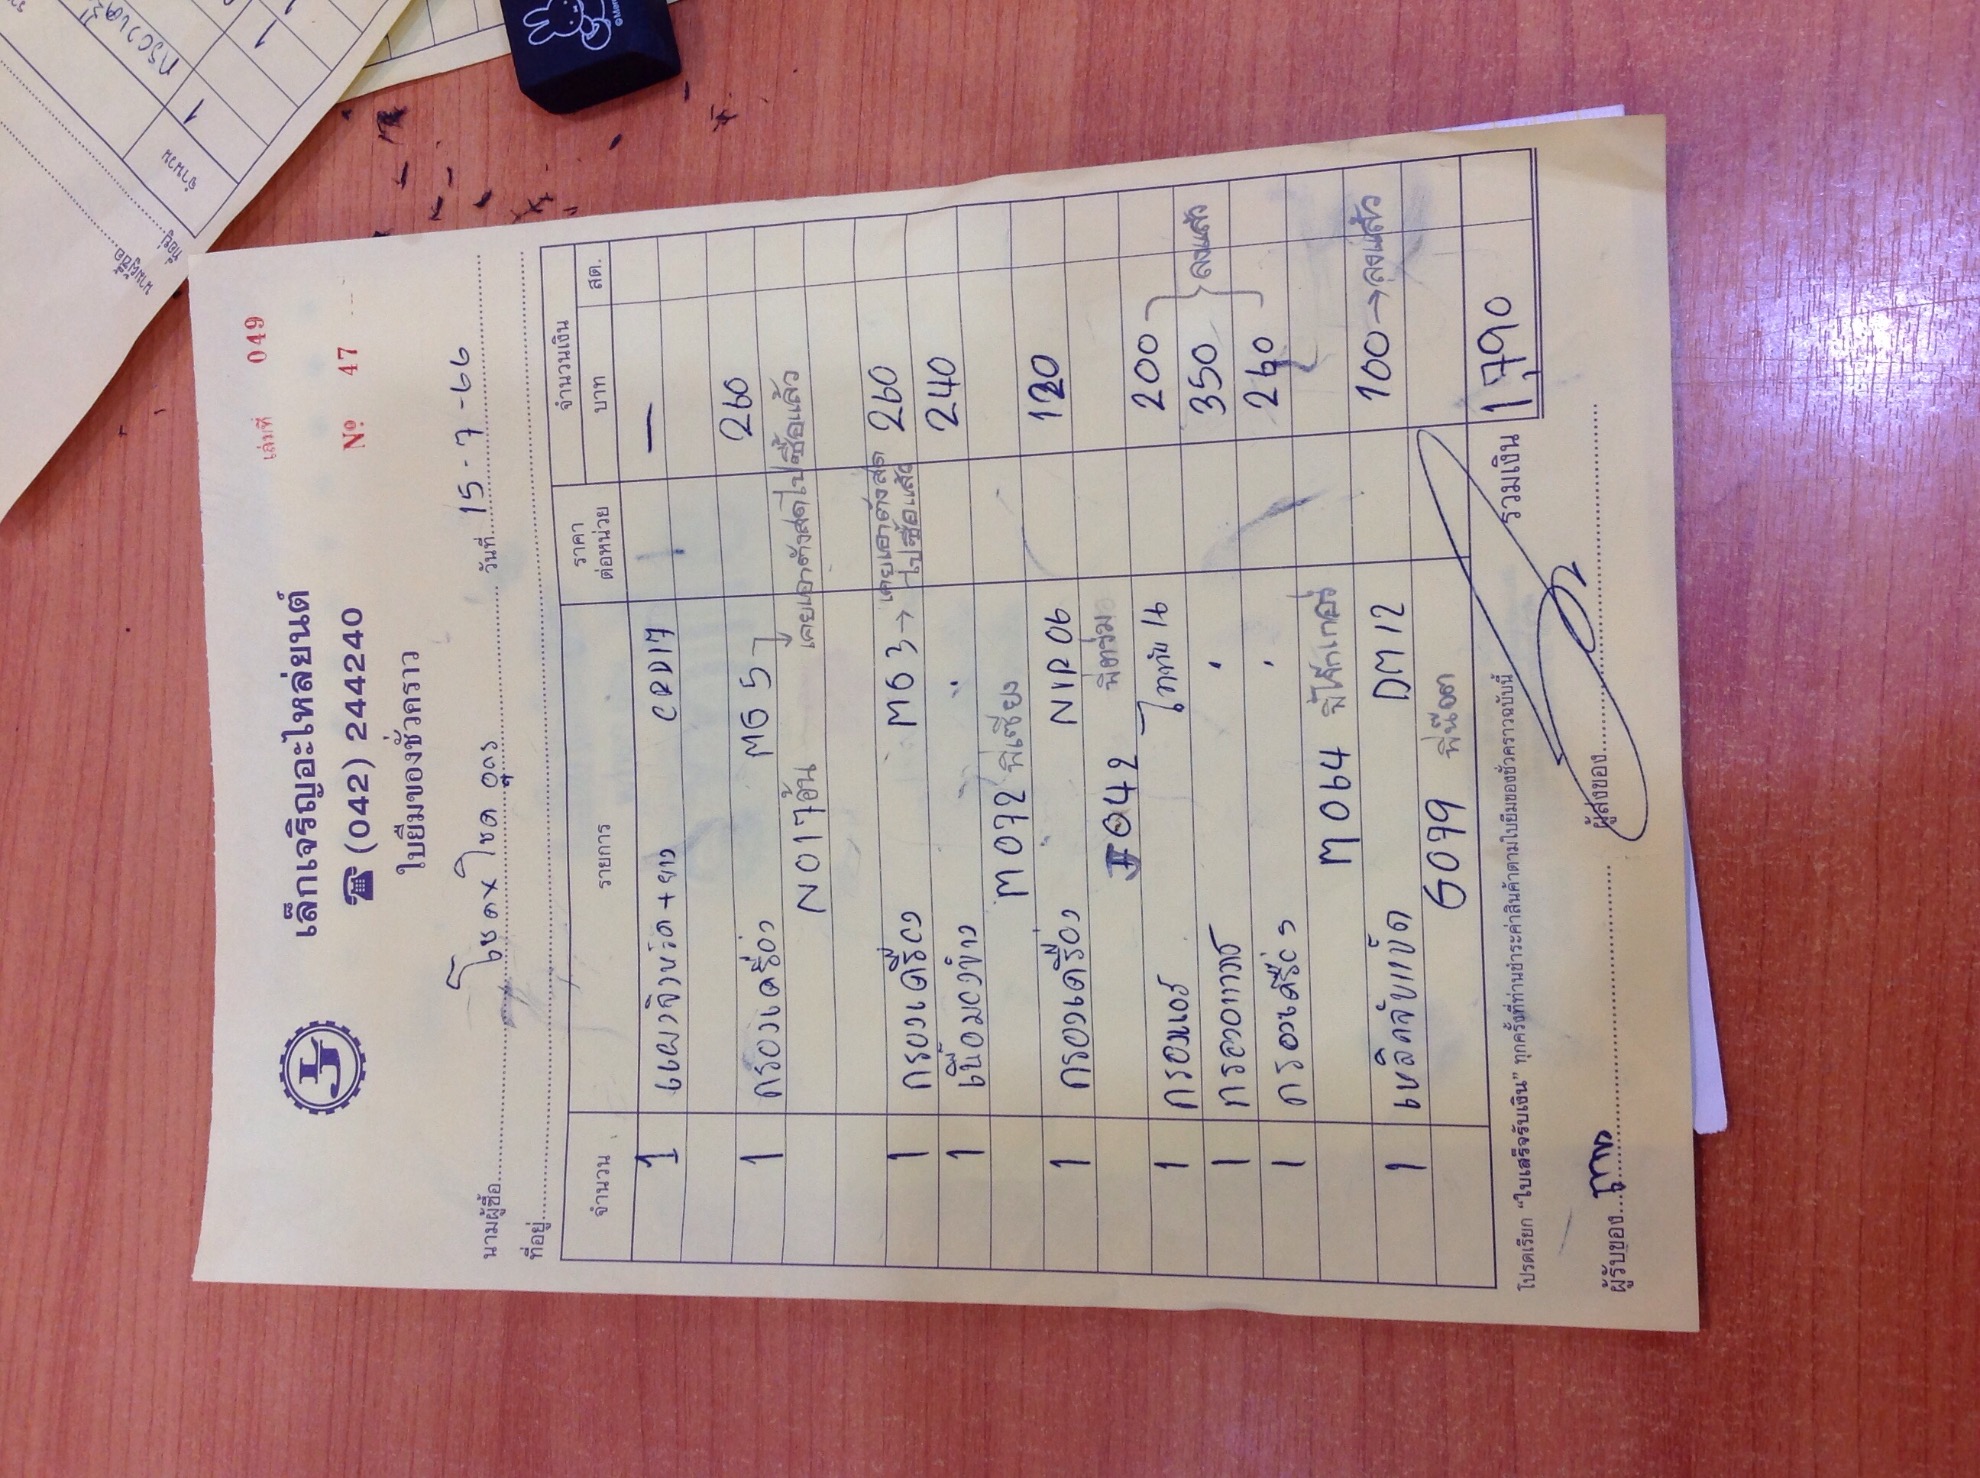 เล่มที่ 049
เล็กเจริญอะไหล่ยนต์
☎ (042) 244240
Nº 47
ใบยืมของชั่วคราว
นามผู้ซื้อ โชคxโชค อุดร วันที่ 15-7-66
ที่อยู่
จำนวน รายการ ราคาต่อหน่วย จำนวนเงิน บาท สต.
1 CRD17 —
1 กรองเครื่อง MG 5 260
N017 อ้น เคยเอาตังสดไปซื้อแล้ว
1 กรองเครื่อง MG 3 → เคยเอาตังสดไปซื้อแล้ว 260
1 240
M072 พี่เซียง
1 กรองเครื่อง NIP06 120
042
1 กรองแอร์ 200
1 350 ลงแล้ว
1 กรองเครื่อง 260
M064
1 DM12 100 → ลงแล้ว
G099
รวมเงิน 1,790
โปรดเรียก "ใบเสร็จรับเงิน" ทุกครั้งที่ท่านชำระค่าสินค้าตามใบยืมของชั่วคราวฉบับนี้
ผู้รับของ ผู้ส่งของ
นามผู้ซื้อ
ที่อยู่
จำนวน
1
1